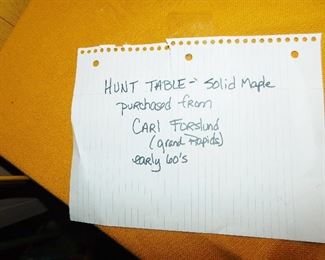 HUNT TABLE - Solid Maple
purchased from
CARL FORSLUND
(grand Rapids)
early 60's